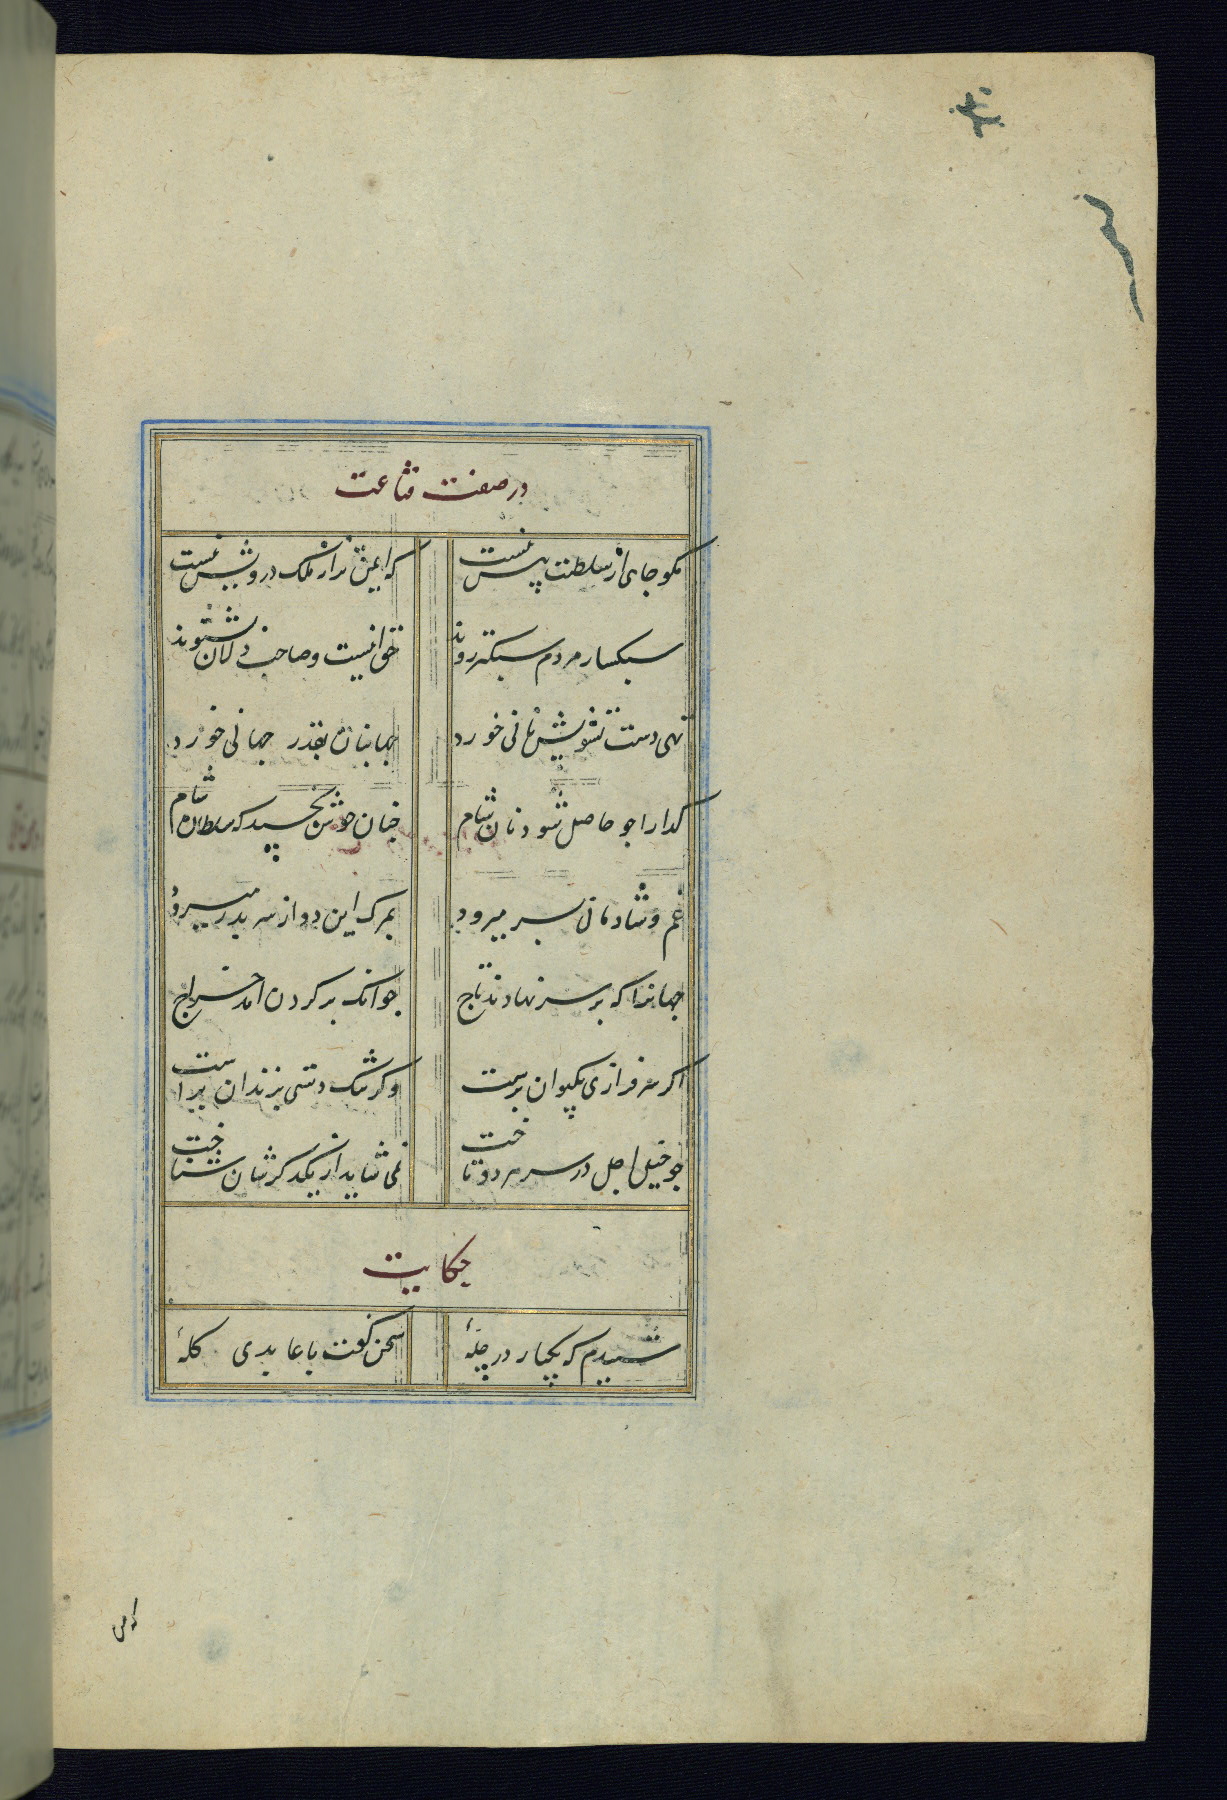 در صفت قناعت
مگو جاهی از سلطنت پیش نیست که ایمن‌تر از ملک درویش نیست
سبکبار مردم سبکتر روند حق اینست و صاحب دلان بشنوند
تهی دست تشویش نانی خورد جهانبان بقدر جهانی خورد
کدا را جو حاصل شود نان شام جنان خوش بخسبد که سلطان شام
غم و شادمانی بسر میرود بمرک این دو از سر بدر میرود
جه آنرا که بر سر نهادند تاج جه آنک بر کردن آمد خراج
اکر سرفرازی بکیوان برست وکر تنک دستی بزندان درست
جو خیل اجل در سر هر دو تاخت نمی شاید از یکدکرشان شناخت
حکایت
شنیدم که یکبار در جلهٔ سخن کفت با عابدی کلهٔ
که من